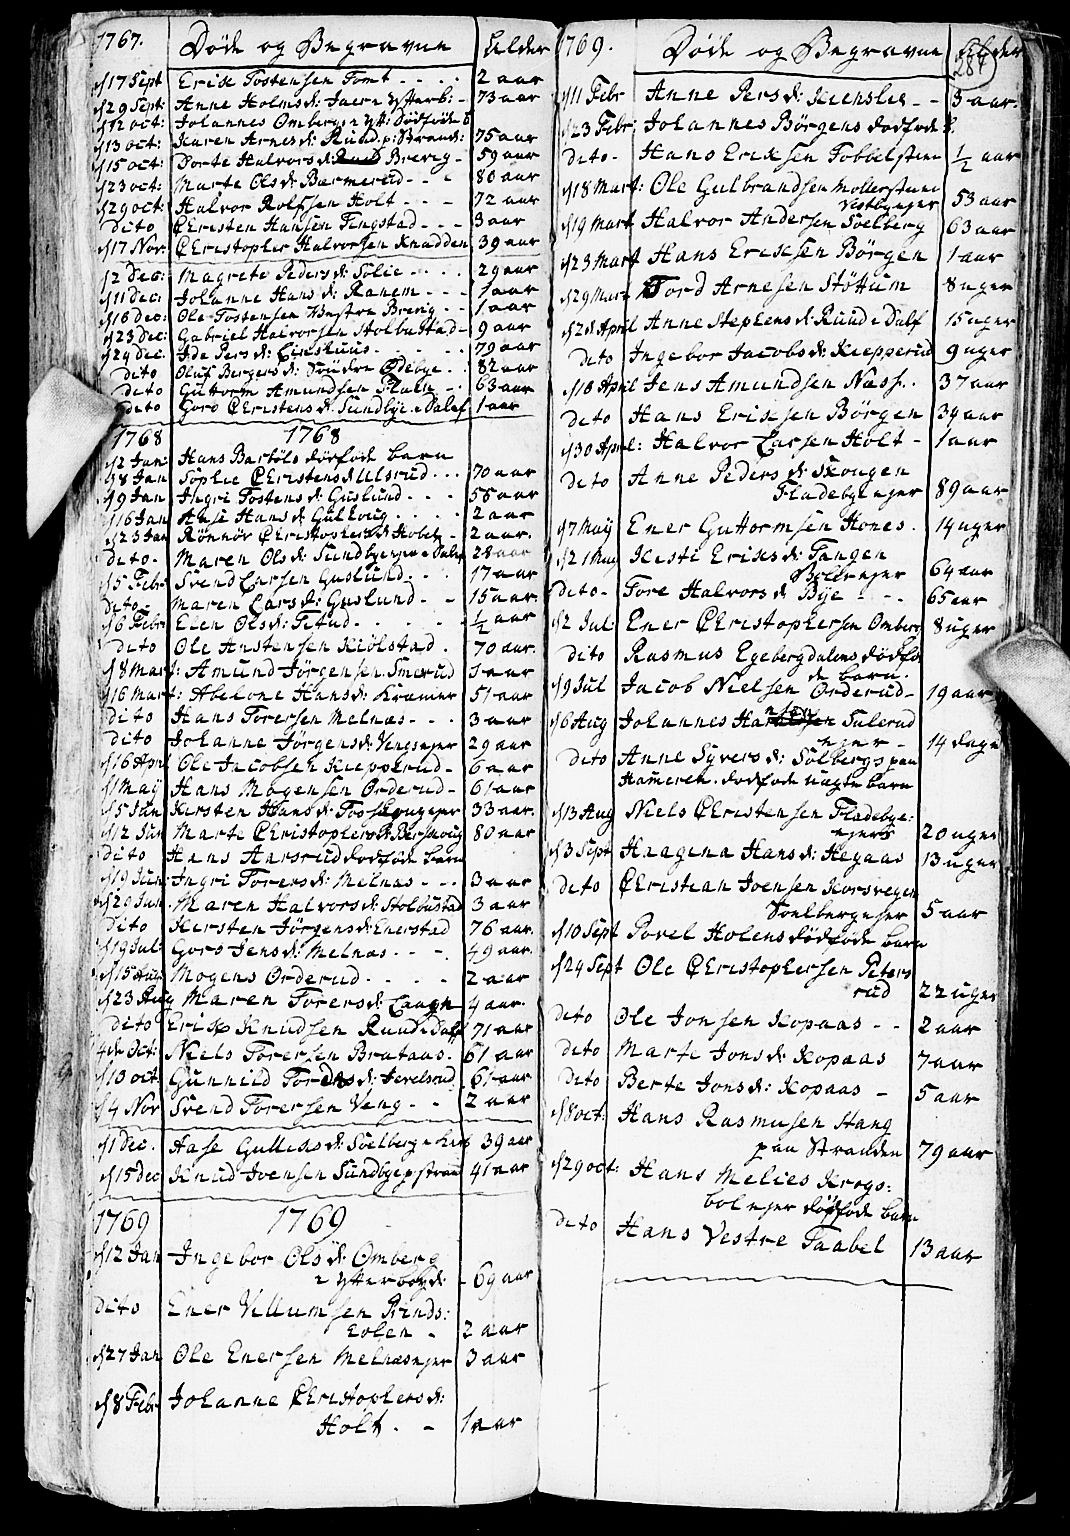 1767. Døde og Begravne Alder
d 17 Sept Erik Tostensen Tomt - - - - 2 aar
d 29 Sept: Anne Holmsd: Jaer i Ytterb: - 73 aar
d 12 oct: Johannes Ombergen ytt: Dødfød b
d 13 oct: Karen Arnesd: Ruud p: Strand: 75 aar
d 15 oct: Dorte Halvorsd: Brevig - 59 aar
d 23 oct: Marte Olsd: Bærmerud - - - 80 aar
d 29 oct: Halvor Rolfsen Holt - - - 72 aar
dito Christen Hansen Tingstad - - - 3 aar
d 17 Nov: Christopher Halvorsen Knudden 39 aar
d 2 Dec: Magrete Pedersd: Solie - - - - 29 aar
d 11 Dec: Johanne Hansd: Ranem - - - 1 aar
d 16 Dec: Ole Tostensen Vestre Brevig - - 1 aar
d 23 Dec: Gabriel Halvorsen Stolbustad - 9 aar
d 24 Dec: Ide Persd: - - - - 79 aar
dito Oluf Bergersd: Søndre Ødebye - : 82 aar
dito Guttorm Amundsen - - 63 aar
dito Goro Christensd: Sundbye i Dalef 1 aar
1768 1768
d 2 Jan: Hans Bartols dødføde barn
d 8 Jan Sophie Christensd: Ulsrud - - - 70 aar
d 9 Jan Ingri Tostensd: Guslund - - - - 56 aar
d 16 Jan Aase Hansd: Gulhoug - - - - - 2 aar
d 23 Jan Rønnor Christophersd: Hobøl - 2 aar.
dito - Maren Olsd: Sundbyeejer i Dalef 28 aar
d 5 Febr Svend Larsen Guslund - - - - 17 aar
dito - Maren Larsd: Guslund - - - 15 aar.
d 6 Febr Elen Olsd: Fetud - - - - - - ½ aar
dito Ole Anstensen Kiølstad - 70 aar.
d 8 Mart: Amund Jørgensen Smerud 3 aar
d 16 Mart: Abelone Hansd: Kramer 51 aar
dito Hans Torersen Melnæs - - - 3 aar
dito Johanne Jørgensd: Vengsejer 29 aar
d 16 April Ole Jacobsen Kiepperud - 6 aar
d 1 May Hans Mogensen Orderud - 61 aar
d 5 Jun Kirsten Hansd: Fossougejer 33 aar.
d 12 Jun Marte Christophersd: Berhoug 80 aar
dito Hans Aarsrud dødføde barn
d 19 Jun: Ingri Torersd: Melnæs - - - 3 aar
d 29 Jun: Maren Halvorsd: Stolbustad 3 aar
dito Kersten Jørgensd: Enerstad 76 aar.
d 19 Jul: Goro Jensd: Melnæs - - - 49 aar.
d 15 Aug Mogens Orderud - - - - - 2 aar
d 23 Aug Maren Torersd: Laugh 4 aar.
dito Erik Knudsen Ruud i Dalf 71 aar
4de Oct: Niels Torersen Brataas - 61 aar
d 10 oct Gunnild Tordsd: Jevelsrud 61 aar
d 4 Nov Svend Torersen Veng - - 2 aar
d 1 Dec. Aase Gulliksd: Solberg 39 aar
d 15 Dec Knud Joensen Sundbye p: stran 41 aar
1769 1769
d 12 Jan Ingebor Olsd: Omberg
i Ytterbøygd: - 69 aar
dito Ener Villumsen Rinds:
eolen - 2 aar
d 27 Jan Ole Enersen Melnæsejer 3 aar
d 8 Febr Johanne Christophersd:
Holt - - 1 aar
1769. Døde og Begravne Alder
284
d 11 Febr Anne Persd: Kiensler - - 3 aar.
d 23 Febr: Johannes Børgens dødføde b.
dito - Hans Eriksen Tobbelsteen ½ aar
d 18 Mart: Ole Gulbrandsen Mollerstuen
Vestbyejer 53 aar
d 19 Mart Halvor Andersen Solberg 63 aar
d 23 Mart Hans Eriksen Børgen 1 aar
d 29 Mart Tord Arnesen Støttum 8 uger
d 2d April Anne Stephensd: Ruud i Dalf 15 uger
dito Ingebor Jacobsd: Kiepperud 9 uger
d 10 April Jens Amundsen Næss - 37 aar
dito Hans Eriksen Børgen 34 aar
d 30 April: Halvor Larsen Holt - 1 aar
dito Anne Pedersd: Skougen
Fladebyeejer 89 aar
d 7 May Ener Guttormsen Hones. 14 uger
d 21 May Kisti Eriksd: Tangen
Bollerejer 64 aar
dito - Tore Halvorsd: Bye - - - 65 aar
d 2 Jul: Ener Christophersen Omberg 8 uger
dito Rasmus Egebergdalens dødfø
de barn.
d 9 Jul Jacob Nielsen Orderud - 19 aar
d 6 Aug Johannes Hansen Tulerud
ejer - 14 dage
dito Anne Syversd: Solbergs paa
Hameren. dødføde uægte barn
d 13 Aug Niels Christensen Fladebye:
ejers 20 uger
d 3 Sept Haagena Hansd: Hegaas 13 uger
dito Christian Joensen Korsvegen
Soelbergejer 5 aar
d 10 Sept Povel Holens dødføde barn
d 24 Sept Ole Christophersen Peters
rud 22 uger
dito Ole Jonsen Kopaas - - 2 aar
dito Marte Jonsd: Kopaas 7 aar
dito Berte Jonsd: Kopaas - 5 aar
d 8 oct: Hans Rasmusen Stang
paa Stranden 79 aar
d 29 oct: Hans Melies Krogs:
bolejer dødføde barn
dito Hans Vestre Taabel 13 aar